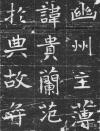 幽州主簿
諱貴蘭范
於典故